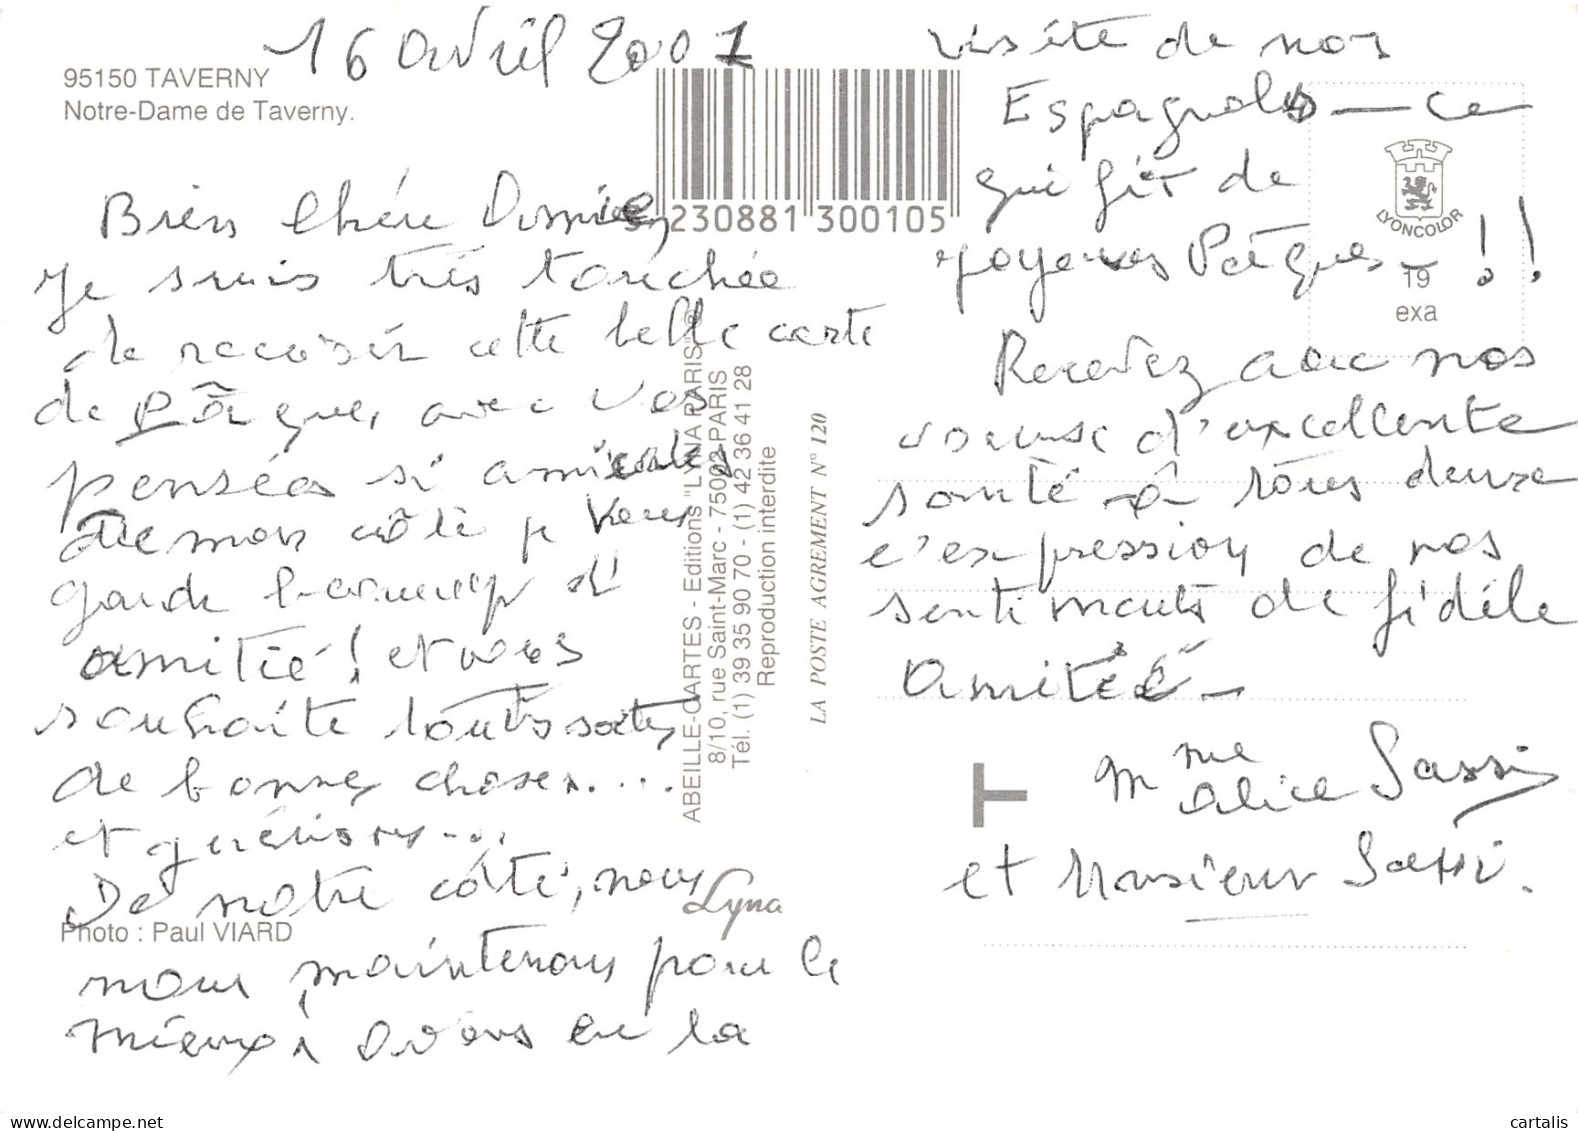 16 avril 2001
95150 TAVERNY
Notre-Dame de Taverny.
230881 300105
Bien chère
Je suis très touchée
de recevoir cette belle carte
de Pâques, avec vos
pensées si amicales
De mon côté je vous
garde beaucoup d'
amitié ! et vous
souhaite toutes sortes
de bonnes choses....
et
De notre côté, nous
nous maintenons pour le
mieux, avons eu la
Photo : Paul VIARD
ABEILLE-CARTES - Editions "LYNA PARIS" ®
8/10, rue Saint-Marc - 75002 PARIS
Tél. (1) 39 35 90 70 - (1) 42 36 41 28
Reproduction interdite
Lyna
LA POSTE AGREMENT N° 120
visite de nos
Espagnols — ce
qui fit de
joyeuses Pâques — !!
LYONCOLOR
19
exa
Recevez avec nos
voeux d'excellente
santé à tous deux
l'expression de nos
sentiments de fidèle
amitié —
Mme Alice Sassi
et Monsieur Sassi.
T
cartalis
delcampe.net